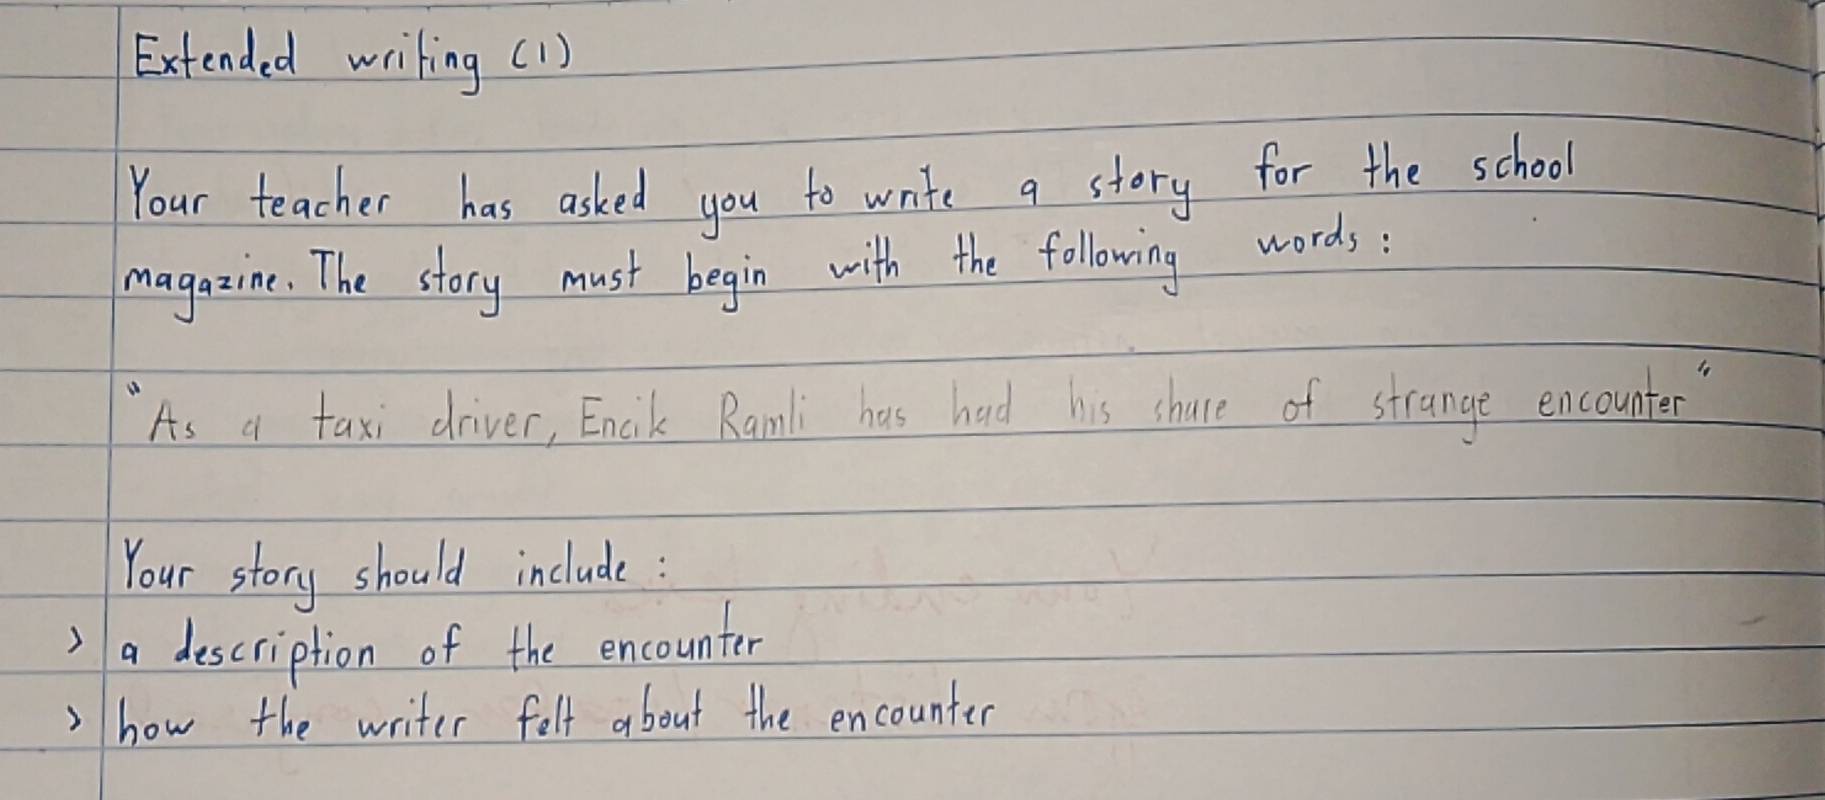 Extended writing (1)
Your teacher has asked you to write a story for the school
magazine. The story must begin with the following words :
"As a taxi driver, Encik Ramli has had his share of strange encounter"
Your story should include :
> a description of the encounter
> how the writer felt about the encounter